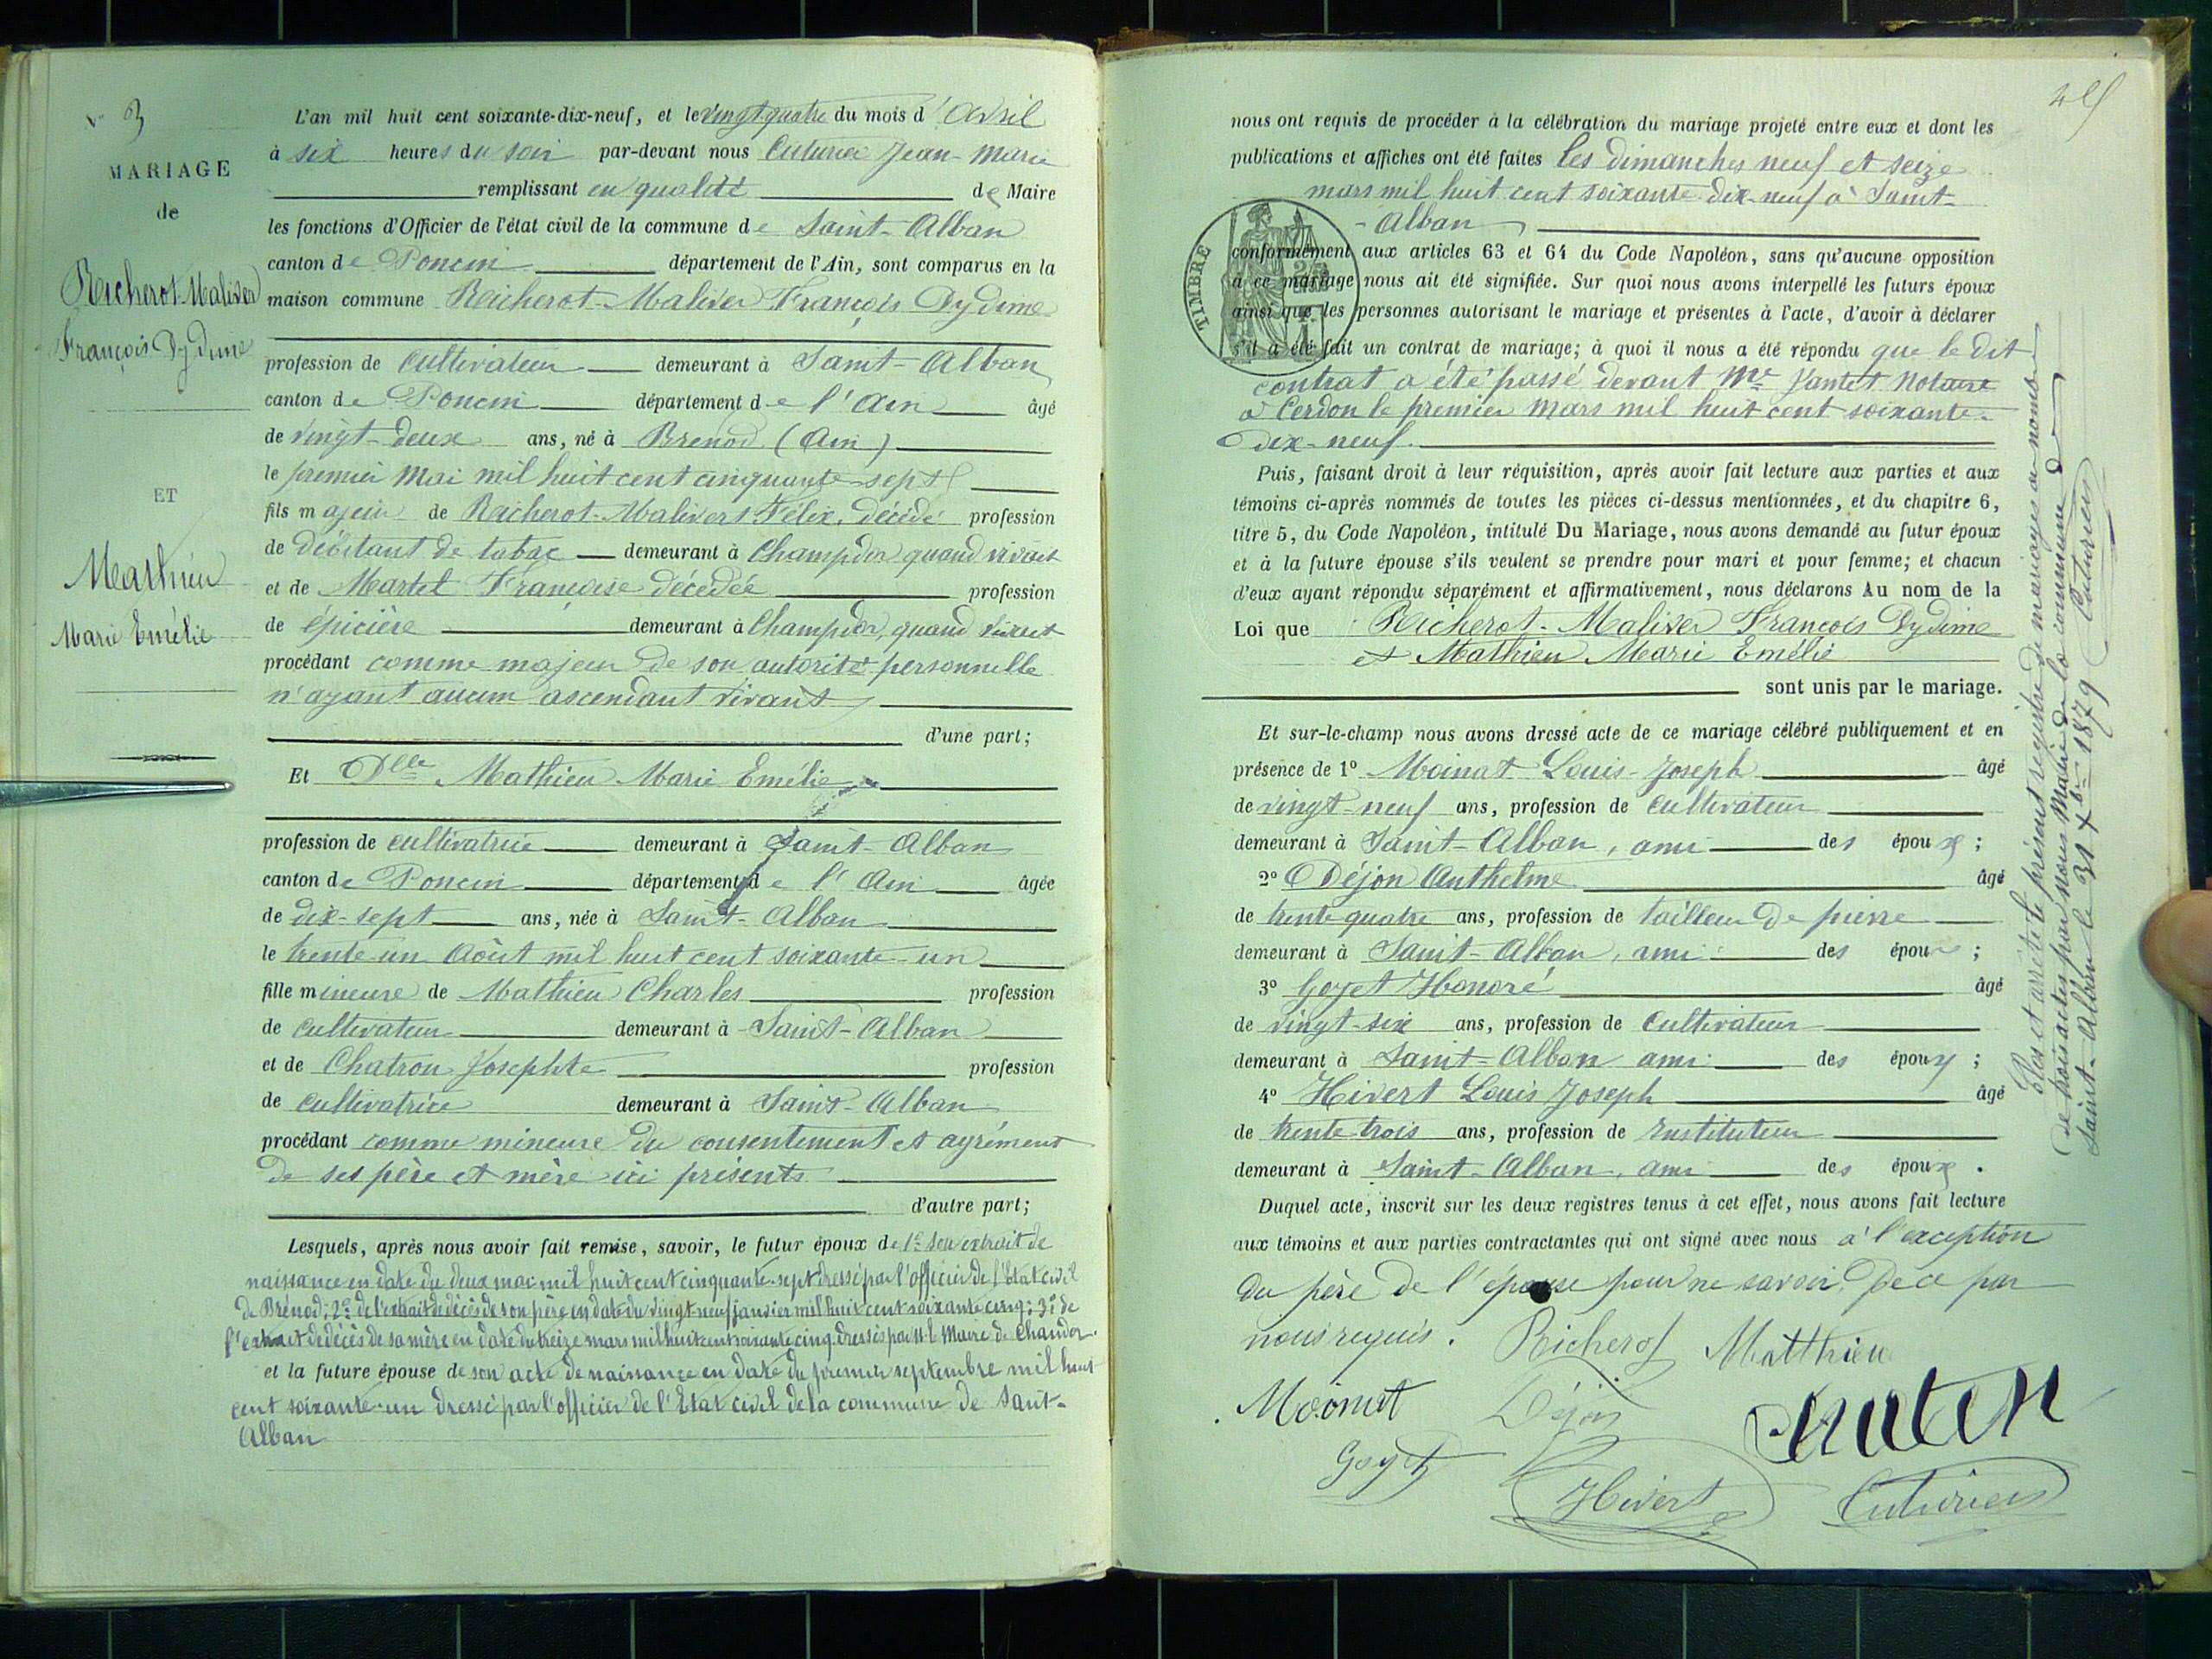 N° 3
MARIAGE
de
Richerot-Maliver
François Dydime
ET
Mathieu
Marie Emélie
L'an mil huit cent soixante-dix-neuf, et le vingt quatre du mois d'Avril
à six heures du soir par-devant nous Cuturier Jean-Marie
remplissant en qualité de Maire
les fonctions d'Officier de l'état civil de la commune de Saint-Alban
canton de Poncin département de l'Ain, sont comparus en la
maison commune Richerot-Maliver François Dydime
profession de cultivateur demeurant à Saint-Alban
canton de Poncin département de l'Ain âgé
de vingt-deux ans, né à Brénod (Ain)
le premier Mai mil huit cent cinquante-sept
fils majeur de Richerot-Malivert Félix, décédé profession
de débitant de tabac demeurant à Champdor quand vivait
et de Martel Françoise décédée profession
de épicière demeurant à Champdor, quand vivait
procédant comme majeur de son autorité personnelle
n'ayant aucun ascendant vivant
d'une part;
Et Dlle Mathieu Marie Emélie
profession de cultivatrice demeurant à Saint-Alban
canton de Poncin département de l'Ain âgée
de dix-sept ans, née à Saint-Alban
le trente-un Août mil huit cent soixante-un
fille mineure de Mathieu Charles profession
de cultivateur demeurant à Saint-Alban
et de Chatron Josephte profession
de cultivatrice demeurant à Saint-Alban
procédant comme mineure du consentement et agrément
de ses père et mère ici présents
d'autre part;
Lesquels, après nous avoir fait remise, savoir, le futur époux de 1° son extrait de
naissance en date du deux mai mil huit cent cinquante-sept dressé par l'officier de l'Etat civil
de Brénod; 2° de l'extrait de décès de son père en date du vingt neuf janvier mil huit cent soixante cinq; 3° de
l'extrait de décès de sa mère en date du treize mars mil huit cent soixante cinq dressés par M. le Maire de Chandor.
et la future épouse de son acte de naissance en date du premier septembre mil huit
cent soixante-un dressé par l'officier de l'Etat civil de la commune de Saint-
Alban
nous ont requis de procéder à la célébration du mariage projeté entre eux et dont les
publications et affiches ont été faites les dimanches neuf et seize
mars mil huit cent soixante-dix-neuf à Saint-
-Alban
TIMBRE
conformément aux articles 63 et 64 du Code Napoléon, sans qu'aucune opposition
à ce mariage nous ait été signifiée. Sur quoi nous avons interpellé les futurs époux
ainsi que les personnes autorisant le mariage et présentes à l'acte, d'avoir à déclarer
s'il a été fait un contrat de mariage; à quoi il nous a été répondu que le dit
contrat a été passé devant Me Jantet Notaire
à Cerdon le premier Mars mil huit cent soixante-
dix-neuf.
Puis, faisant droit à leur réquisition, après avoir fait lecture aux parties et aux
témoins ci-après nommés de toutes les pièces ci-dessus mentionnées, et du chapitre 6,
titre 5, du Code Napoléon, intitulé Du Mariage, nous avons demandé au futur époux
et à la future épouse s'ils veulent se prendre pour mari et pour femme; et chacun
d'eux ayant répondu séparément et affirmativement, nous déclarons Au nom de la
Loi que Richerot-Maliver François Dydime
et Mathieu Marie Emélie
sont unis par le mariage.
Et sur-le-champ nous avons dressé acte de ce mariage célébré publiquement et en
présence de 1° Moinat Louis-Joseph âgé
de vingt-neuf ans, profession de cultivateur
demeurant à Saint-Alban, ami des époux ;
2° Déjon Anthelme âgé
de trente-quatre ans, profession de tailleur de pierre
demeurant à Saint-Alban, ami des époux ;
3° Goyet Honoré âgé
de vingt-six ans, profession de cultivateur
demeurant à Saint-Alban ami des époux ;
4° Hivert Louis Joseph âgé
de trente-trois ans, profession de Instituteur
demeurant à Saint-Alban, ami des époux.
Duquel acte, inscrit sur les deux registres tenus à cet effet, nous avons fait lecture
aux témoins et aux parties contractantes qui ont signé avec nous à l'exception
du père de l'épouse pour ne savoir De ce par
nous requis. Richerot Matthieu
Moinat Déjon
Goyet Hivert Cuturier
Clos et arrêté le présent registre de mariages au nombre
de trois actes par nous Maire de la commune de
Saint-Alban le 31 Xbre 1879 Cuturier